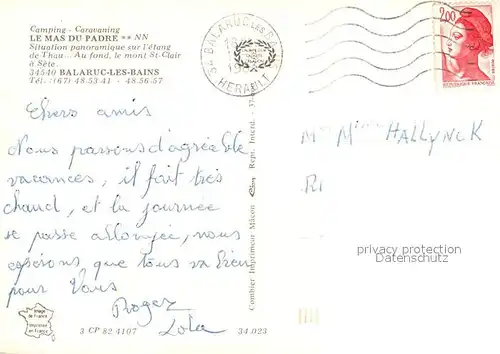 Camping - Caravaning
LE MAS DU PADRE ** NN
Situation panoramique sur l'étang
de Thau... Au fond, le mont St-Clair
à Sète.
34540 BALARUC-LES-BAINS
Tél. (67) 48.53.41 - 48.56.57
34 BALARUC LES B
HERAULT
2,00
Chers amis
Nous passons d'agréable
vacances, il fait très
chaud, et la journée
se passe allongée, nous
espérons que tous va bien
pour Vous
Roger
Lola
HALLYNCK
privacy protection
Datenschutz
Combier Imprimeur Mâcon
Repr. Interd.
Image
de France
Imprimé
en France
3 CP 82 4107
34.023